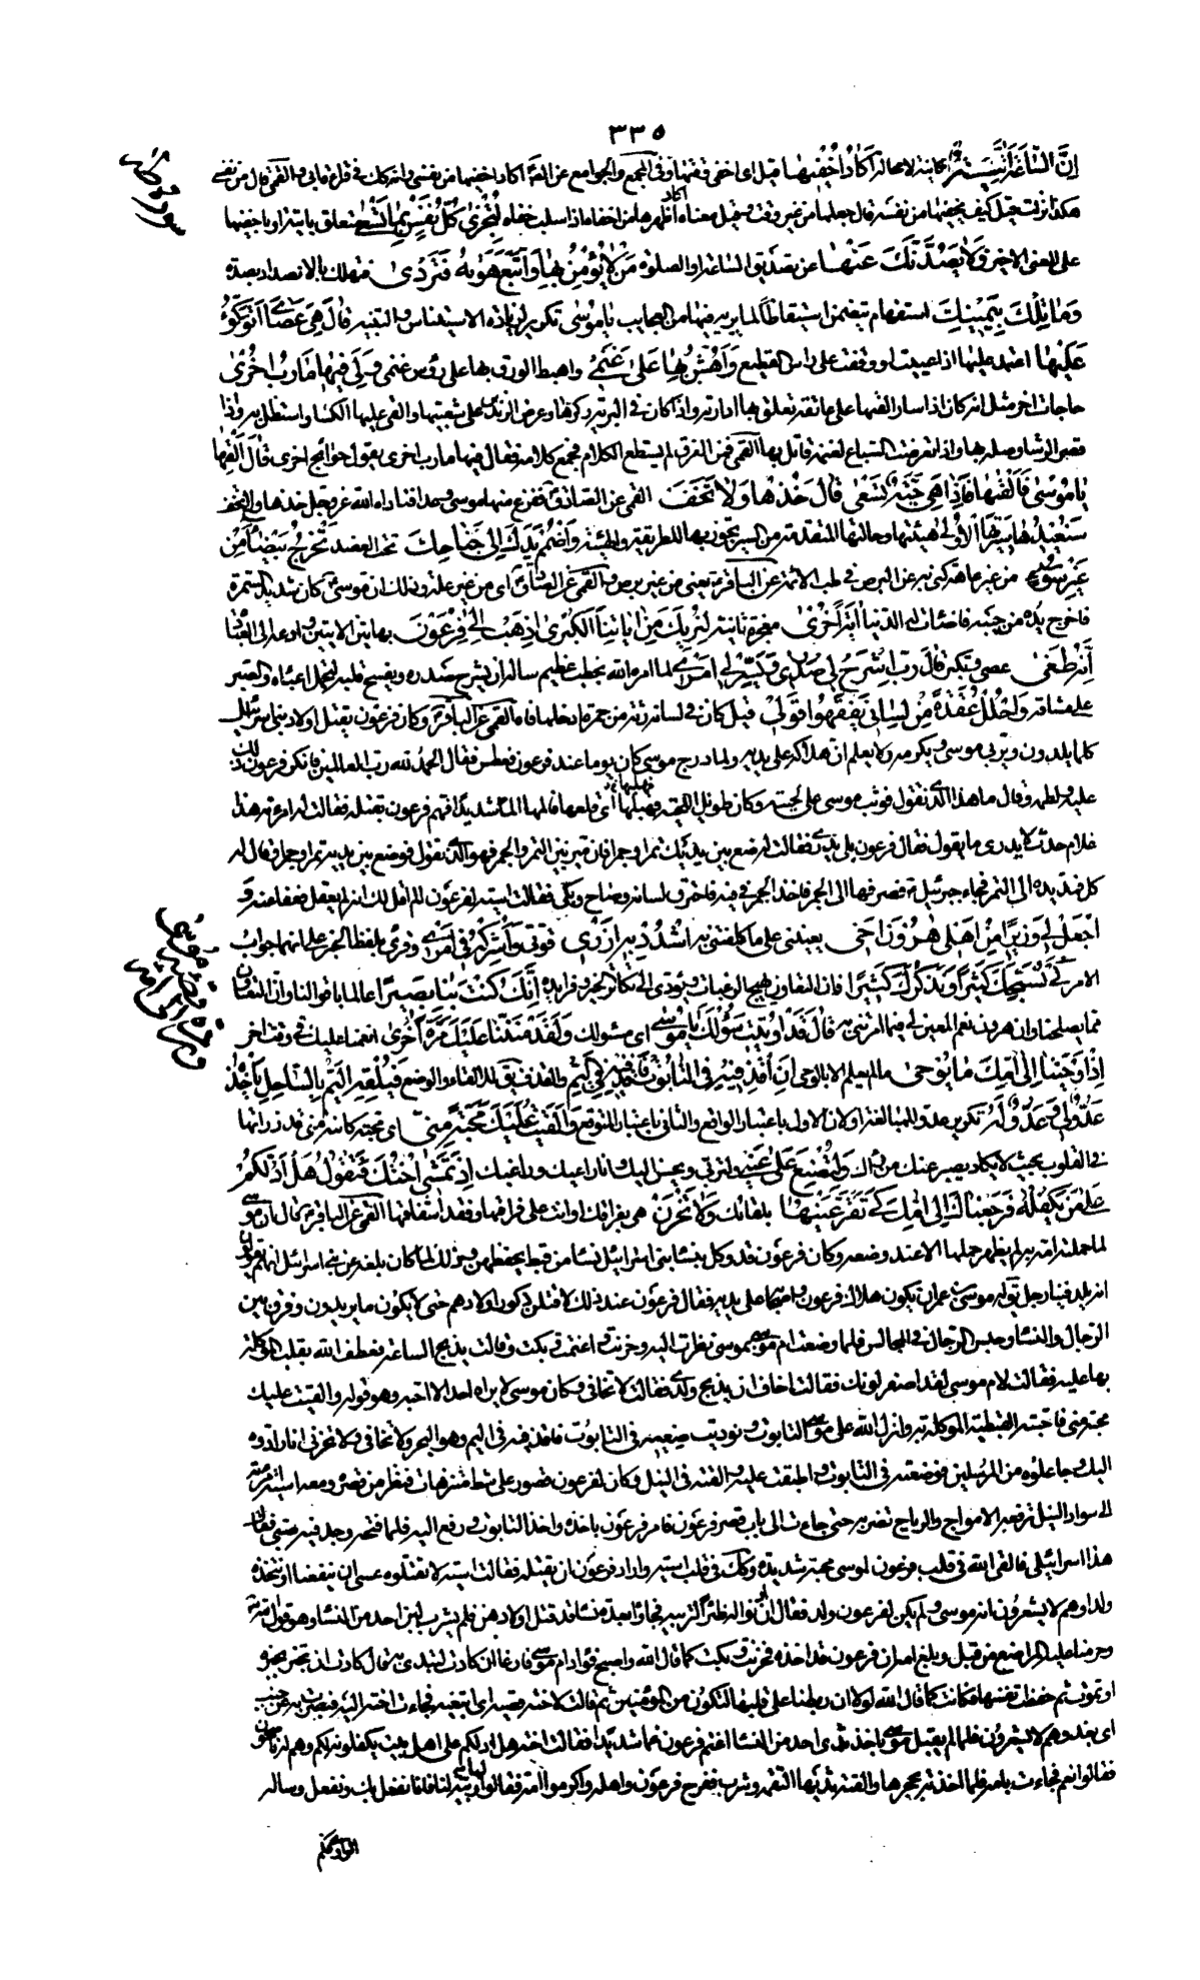 ٣٣٥
إِنَّ السَّاعَةَ اٰتِيَةٌ كاينة لا محالة اَكَادُ اُخْفِيهَا قيل اى اخفى وقتها وفى المجمع والجوامع عن الصادق اكاد اخفيها من نفسى وانه كك فى قراءة ابى والقمى قال من نفسى
هكذا نزلت قيل كيف يخفيها من نفسه قال جعلها من غير وقت وقيل معناه اكاد اظهرها من اخفاه اذا سلب خفاه لِتُجْزٰى كُلُّ نَفْسٍ بِمَا تَسْعٰى متعلق باتية او باخفيها
على المعنى الاخير فَلَا يَصُدَّنَّكَ عَنْهَا عن تصديق الساعة او الصلوة مَنْ لَا يُؤْمِنُ بِهَا وَاتَّبَعَ هَوٰيهُ فَتَرْدٰى فتهلك بالانصداد بصده
وَمَا تِلْكَ بِيَمِينِكَ استفهام يتضمن استيقاظا لما يريه فيها من العجايب يَا مُوسٰى تكرير لزيادة الاستيناس والتنبيه قَالَ هِيَ عَصَايَ اَتَوَكَّؤُ
عَلَيْهَا اعتمد عليها اذا عييت او وقفت على راس القطيع وَاَهُشُّ بِهَا عَلٰى غَنَمِي واهبط الورق بها على رؤس غنمى وَلِيَ فِيهَا مَاٰرِبُ اُخْرٰى
حاجات اخر مثل انه كان اذا سار القاها على عاتقه فعلق بها ادواته واذا كان فى البرية ركزها وعرض الزندين على شعبتيها والقى عليها الكساء واستظل به واذا
قصر الرشا وصله بها واذا تعرضت السباع لغنمه قاتل بها القمى فمن الفرق لم يستطع الكلام فجمع كلامه فقال فيها مارب اخرى يقول حوائج اخرى قَالَ اَلْقِهَا
يَا مُوسٰى فَاَلْقٰيهَا فَاِذَا هِيَ حَيَّةٌ تَسْعٰى قَالَ خُذْهَا وَلَا تَخَفْ القمى عن الصادق ففزع منها موسى وعدا فناداه الله عز وجل خذها ولا تخف
سَنُعِيدُهَا سِيرَتَهَا الْاُولٰى هيئتها وحالتها المتقدمة من السير تجوز بها للطريقة والهيئة وَاضْمُمْ يَدَكَ اِلٰى جَنَاحِكَ تحت العضد تَخْرُجْ بَيْضَاءَ مِنْ
غَيْرِ سُوءٍ من غير عاهة كنى به عن البرص فى طب الائمة عن الباقر يعنى من غير برص والقمى عن الصادق اى من غير علة وذلك ان موسى كان شديد السمرة
فاخرج يده من جيبه فاضائت له الدنيا اٰيَةً اُخْرٰى معجزة ثانية لِنُرِيَكَ مِنْ اٰيَاتِنَا الْكُبْرٰى اِذْهَبْ اِلٰى فِرْعَوْنَ بهاتين الايتين وادعه الى العبادة
اِنَّهُ طَغٰى عصى وتكبر قَالَ رَبِّ اشْرَحْ لِي صَدْرِي وَيَسِّرْ لِي اَمْرِي لما امره الله بخطب عظيم ساله ان يشرح صدره ويفسح قلبه لتحمل اعبائه والصبر
على مشاقه وَاحْلُلْ عُقْدَةً مِنْ لِسَانِي يَفْقَهُوا قَوْلِي قيل كان فى لسانه رتة من جمرة ادخلها فاه القمى عن الباقر وكان فرعون يقتل اولاد بنى اسرائيل
كلما يلدون ويربى موسى ويكرمه ولا يعلم ان هلاكه على يديه ولما درج موسى كان يوما عند فرعون فعطس فقال الحمد لله رب العالمين فانكر فرعون ذلك
عليه ولطمه وقال ما هذا الذى تقول فوثب موسى على لحيته وكان طويل اللحية فهلبها اى قلعها فالمه الما شديدا فهم فرعون بقتله فقالت له امراته هذا
غلام حدث لا يدرى ما يقول فقال فرعون بلى يدرى فقالت له ضع بين يديك تمرا وجمرا فان ميز بين التمر والجمر فهو الذى تقول فوضع بين يديه تمرا وجمرا وقال له
كل فمد يده الى التمر فجاء جبرئيل فصرفها الى الجمر فاخذ الجمر فى فيه فاحترق لسانه وصاح وبكى فقالت اسية لفرعون الم اقل لك انه لم يعقل فعفا عنه وَ
اجْعَلْ لِي وَزِيرًا مِنْ اَهْلِي هٰرُونَ اَخِي يعيننى على ما كلفتنى به اشْدُدْ بِهِ اَزْرِي قوتى وَاَشْرِكْهُ فِي اَمْرِي وقرئ بلفظ الخبر على انهما جواب
الامر كَيْ نُسَبِّحَكَ كَثِيرًا وَنَذْكُرَكَ كَثِيرًا فان التعاون يهيج الرغبات ويؤدى الى تكاثر الخير وتزايده اِنَّكَ كُنْتَ بِنَا بَصِيرًا عالما باحوالنا وان التعاون
مما يصلحنا وان هرون نعم المعين لى فيما امرتنى به قَالَ قَدْ اُوتِيتَ سُؤْلَكَ يَا مُوسٰى اى مسئولك وَلَقَدْ مَنَنَّا عَلَيْكَ مَرَّةً اُخْرٰى انعمنا عليك فى وقت اخر
اِذْ اَوْحَيْنَا اِلٰى اُمِّكَ مَا يُوحٰى ما لم يعلم الا بالوحى اَنِ اقْذِفِيهِ فِي التَّابُوتِ فَاقْذِفِيهِ فِي الْيَمِّ والقذف يقال للالقاء والوضع فَلْيُلْقِهِ الْيَمُّ بِالسَّاحِلِ يَاْخُذْهُ
عَدُوٌّ لِي وَعَدُوٌّ لَهُ تكرير عدو للمبالغة او لان الاول باعتبار الواقع والثانى باعتبار المتوقع وَاَلْقَيْتُ عَلَيْكَ مَحَبَّةً مِنِّي اى محبة كائنة منى قد زرعتها
فى القلوب بحيث لا يكاد يصبر عنك من راك وَلِتُصْنَعَ عَلٰى عَيْنِي ولتربى ويحسن اليك وانا راعيك وراقبك اِذْ تَمْشِي اُخْتُكَ فَتَقُولُ هَلْ اَدُلُّكُمْ
عَلٰى مَنْ يَكْفُلُهُ فَرَجَعْنَاكَ اِلٰى اُمِّكَ كَيْ تَقَرَّ عَيْنُهَا بلقائك وَلَا تَحْزَنَ هى بفراقك او انت على فراقها وفقد اشفاقها القمى عن الباقر قال ان موسى
لما حملت امه به لم يظهر حملها الا عند وضعه وكان فرعون قد وكل بنساء بنى اسرائيل نساء من قبط يحفظهن وذلك لما كان بلغه عن بنى اسرائيل انهم يقولون
انه يلد فينا رجل يقال له موسى بن عمران يكون هلاك فرعون واصحابه على يديه فقال فرعون عند ذلك لاقتلن ذكور اولادهم حتى لا يكون ما يريدون وفرق بين
الرجال والنساء وحبس الرجال فى المحابس فلما وضعت ام موسى بموسى نظرت اليه وحزنت واغتمت وبكت وقالت يذبح الساعة فعطف الله بقلب الموكلة
بها عليه فقالت لام موسى لقد اصفر لونك فقالت اخاف ان يذبح ولدى فقالت لا تخافى وكان موسى لا يراه احد الا احبه وهو قوله والقيت عليك
محبة منى فاحبته القبطية الموكلة به وانزل الله على ام موسى التابوت ونوديت ضعيه فى التابوت فاقذفيه فى اليم وهو البحر ولا تخافى ولا تحزنى انا رادوه
اليك وجاعلوه من المرسلين فوضعته فى التابوت واطبقت عليه والقته فى النيل وكان لفرعون قصور على شط النيل متنزهات فنظر من قصره ومعه اسية امراته
الى سواد النيل ترفعه الامواج والرياح تضربه حتى جاءت الى باب قصر فرعون فامر فرعون باخذه واخذ التابوت ورفع اليه فلما فتحه وجد فيه صبى فقال
هذا اسرائيلى فالقى الله فى قلب فرعون لموسى محبة شديدة وكك فى قلب اسية واراد فرعون ان يقتله فقالت اسية لا تقتلوه عسى ان ينفعنا او نتخذه
ولدا وهم لا يشعرون انه موسى ولم يكن لفرعون ولد فقال ائتوا له ظئرا لتربيه فجاؤا بعدة نساء قد قتل اولادهن فلم يشرب لبن احد من النساء وهو قول الله
وحرمنا عليه المراضع من قبل وبلغ امه ان فرعون قد اخذه فحزنت وبكت كما قال الله واصبح فؤاد ام موسى فارغا ان كادت لتبدى به قال كادت ان تخبر بخبره
او تموت ثم حفظت نفسها فكانت كما قال الله لولا ان ربطنا على قلبها لتكون من المؤمنين ثم قالت لاخته قصيه اى اتبعيه فجاءت اخته اليه فبصرت به عن جنب
اى بعد وهم لا يشعرون فلما لم يقبل موسى باخذ ثدى احد من النساء اغتم فرعون غما شديدا فقالت اخته هل ادلكم على اهل بيت يكفلونه لكم وهم له ناصحون
فقالوا نعم فجاءت بامه فلما اخذته بحجرها والقمته ثديها التقمه وشرب ففرح فرعون واهله واكرموا امه فقالوا ربيه لنا فانا نفعل بك ونفعل وساله
الراوى